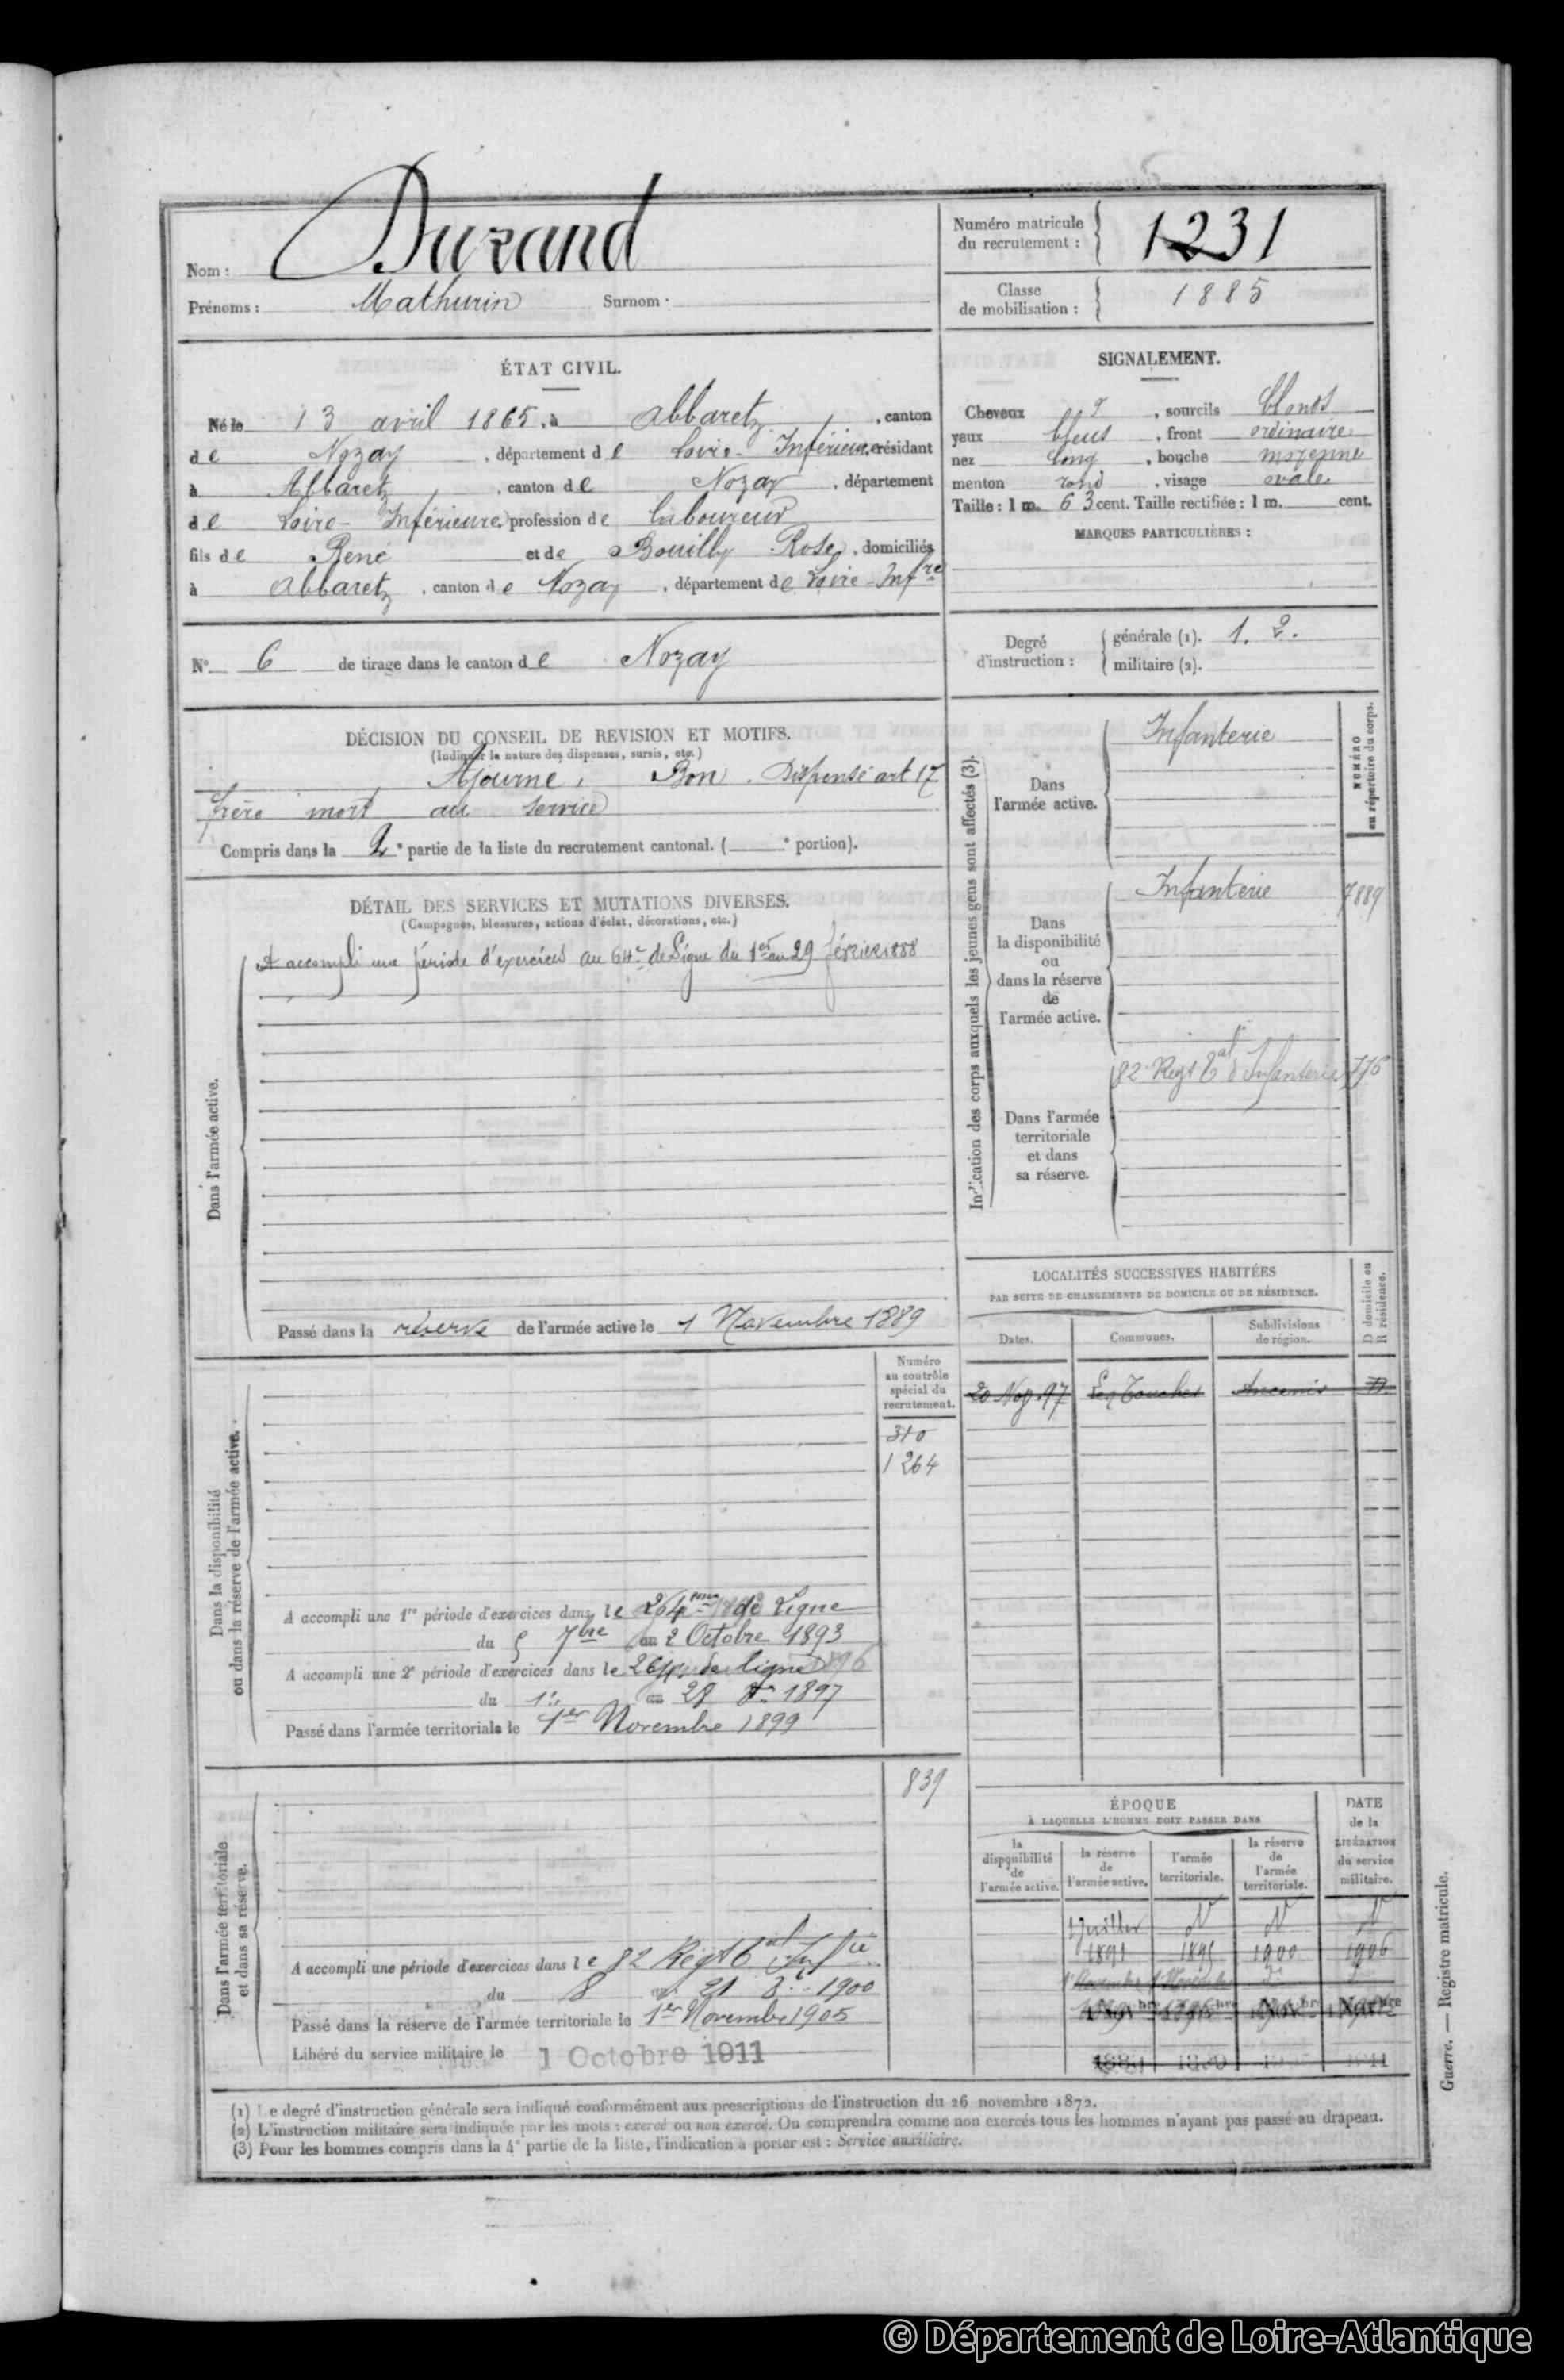 Nom : Durand
Prénoms : Mathurin Surnom :
Numéro matricule
du recrutement : 1231
Classe
de mobilisation : 1885
ÉTAT CIVIL.
Né le 13 avril 1865, à Abbaretz, canton
de Nozay, département de Loire-Inférieure, résidant
à Abbaretz, canton de Nozay, département
de Loire-Inférieure, profession de laboureur
fils de René et de Bouilly Rose, domiciliés
à Abbaretz, canton de Nozay, département de Loire-Infre
SIGNALEMENT.
Cheveux, sourcils blonds
yeux bleus, front ordinaire
nez long, bouche moyenne
menton rond, visage ovale.
Taille : 1 m. 63 cent. Taille rectifiée : 1 m. cent.
MARQUES PARTICULIÈRES :
N° 6 de tirage dans le canton de Nozay
Degré
d'instruction :
générale (1). 1. 2.
militaire (2).
DÉCISION DU CONSEIL DE REVISION ET MOTIFS.
(Indiquer la nature des dispenses, sursis, etc.)
Ajourné, Bon. Dispensé art 17
frère mort au service
Compris dans la 2e partie de la liste du recrutement cantonal. ( e portion).
DÉTAIL DES SERVICES ET MUTATIONS DIVERSES.
(Campagnes, blessures, actions d'éclat, décorations, etc.)
Dans l'armée active.
A accompli une période d'exercices au 64e de Ligne du 1er au 29 février 1888
Passé dans la réserve de l'armée active le 1 Novembre 1889
Indication des corps auxquels les jeunes gens sont affectés (3).
NUMÉRO
au répertoire du corps.
Dans
l'armée active.
Infanterie
Dans
la disponibilité
ou
dans la réserve
de
l'armée active.
Infanterie 7889
Dans l'armée
territoriale
et dans
sa réserve.
82e Regt tal d'Infanterie 776
LOCALITÉS SUCCESSIVES HABITÉES
PAR SUITE DE CHANGEMENTS DE DOMICILE OU DE RÉSIDENCE.
D domicile ou
R résidence.
Dates. Communes. Subdivisions
de région.
20 Nov 97 Les Touches Ancenis D.
Dans la disponibilité
ou dans la réserve de l'armée active.
Numéro
au contrôle
spécial du
recrutement.
310
1264
A accompli une 1re période d'exercices dans le 264eme de Ligne
du 5 7bre au 2 Octobre 1893
A accompli une 2e période d'exercices dans le de ligne
du 1er au 28 1897
Passé dans l'armée territoriale le 1er Novembre 1899
Dans l'armée territoriale
et dans sa réserve.
839
A accompli une période d'exercices dans le 82 Regt tal Infie
du 8 au 21 1900
Passé dans la réserve de l'armée territoriale le 1er Novembre 1905
Libéré du service militaire le 1 Octobre 1911
ÉPOQUE
À LAQUELLE L'HOMME DOIT PASSER DANS
DATE
de la
LIBÉRATION
du service
militaire.
la
disponibilité
de
l'armée active.
la réserve
de
l'armée active.
l'armée
territoriale.
la réserve
de
l'armée
territoriale.
1 Juillet
1891 1895 1900 1906
(1) Le degré d'instruction générale sera indiqué conformément aux prescriptions de l'instruction du 26 novembre 1872.
(2) L'instruction militaire sera indiquée par les mots : exercé ou non exercé. On comprendra comme non exercés tous les hommes n'ayant pas passé au drapeau.
(3) Pour les hommes compris dans la 4e partie de la liste, l'indication à porter est : Service auxiliaire.
Guerre. — Registre matricule.
© Département de Loire-Atlantique